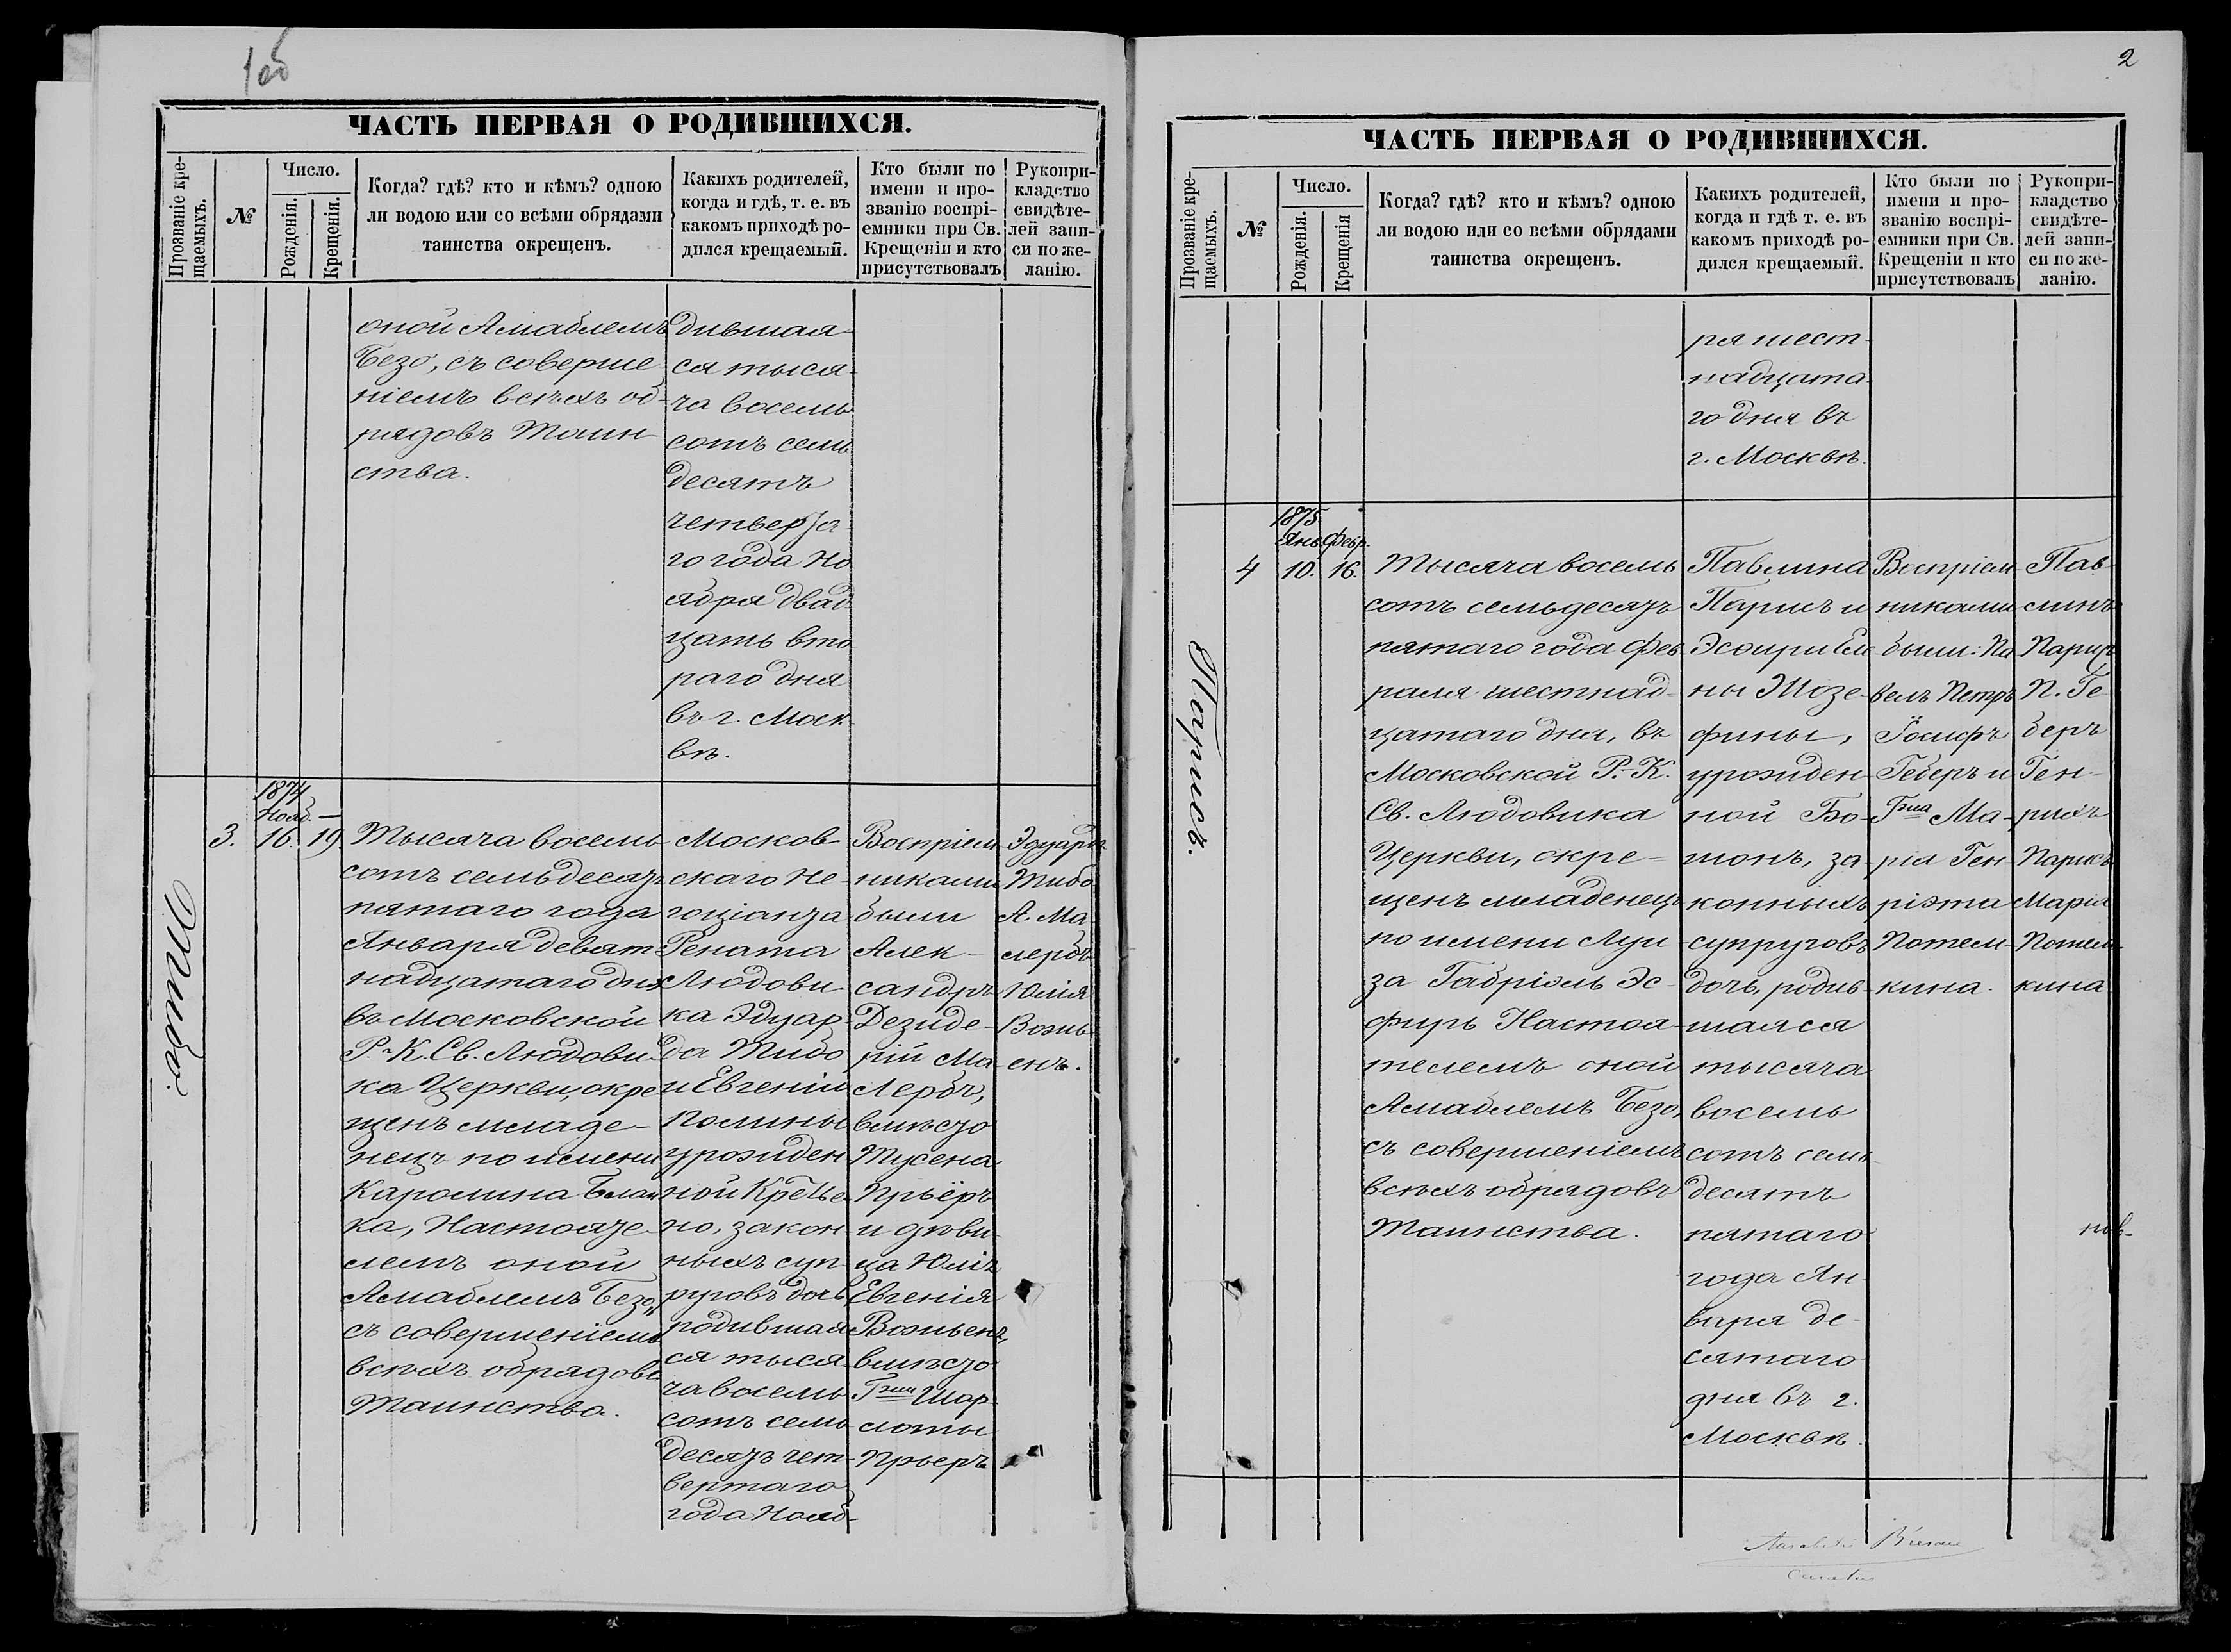 1об
ЧАСТЬ ПЕРВАЯ О РОДИВШИХСЯ.
Прозваніе кре-
щаемыхъ.
№
Число.
Рожденія.
Крещенія.
Когда? гдѣ? кто и кѣмъ? одною
ли водою или со всѣми обрядами
таинства окрещенъ.
Какихъ родителей,
когда и гдѣ, т. е. въ
какомъ приходѣ ро-
дился крещаемый.
Кто были по
имени и про-
званію воспрі-
емники при Св.
Крещеніи и кто
присутствовалъ
Рукопри-
кладство
свидѣте-
лей запи-
си по же-
ланію.
оной Амаблемъ
Безо, съ соверше-
ніемъ всѣхъ об-
рядовъ Таин-
ства.
дившая-
ся тыся-
ча восемь
сотъ семь
десятъ
четверта-
го года Но
ября двад
цать вто
раго дня
въ г. Моск-
вѣ.
Тибо.
3.
1874
Нояб.
16.
–
19
Тысяча восемь
сотъ семьдесятъ
пятаго года
Января девят-
надцатаго дня
въ Московской
Р.-К. Св. Людови-
ка Церкви, окре
щенъ младе-
нецъ по имени
Каролина Блан
ка, Настояте-
лемъ оной
Амаблемъ Безо,
съ совершеніемъ
всѣхъ обрядовъ
Таинства.
Москов-
скаго Не-
гоціанта
Рената
Людови-
ка Эдуар-
да Тибо
и Евгеніи
Полины
урожден
ной Кретье
но, закон
ныхъ суп-
руговъ дочь
родившая
ся тыся
ча восемь
сотъ семь
десятъ чет-
вертаго
года Нояб-
Воспріем
никами
были
Алек-
сандръ
Дезиде-
рій Ма-
лербъ,
вмѣсто
Тусена
Прьёръ
и дѣви-
ца Юлія
Евгенія
Вожьенъ,
вмѣсто
Гжи Шар-
лоты
Прьеръ
Эдуардъ
Тибо
А. Ма
лербъ
Юлія
Вожь-
енъ.
2
ЧАСТЬ ПЕРВАЯ О РОДИВШИХСЯ.
Прозваніе кре-
щаемыхъ.
№
Число.
Рожденія.
Крещенія
Когда? гдѣ? кто и кѣмъ? одною
ли водою или со всѣми обрядами
таинства окрещенъ.
Какихъ родителей,
когда и гдѣ т. е. въ
какомъ приходѣ ро-
дился крещаемый.
Кто были по
имени и про-
званію воспрі-
емники при Св.
Крещеніи и кто
присутствовалъ
Рукопри-
кладство
свидѣте-
лей запи-
си по же-
ланію.
ря шест-
надцата-
го дня въ
г. Москвѣ.
Парисъ.
4
1875
Янв.
10.
Февр.
16.
Тысяча восемь
сотъ семьдесятъ
пятаго года Фев
раля шестнад-
цатаго дня, въ
Московской Р.-К.
Св. Людовика
Церкви, окре-
щенъ младенецъ
по имени Луи-
за Габріэль Эс-
фирь Настоя-
телемъ оной
Амаблемъ Безо,
съ совершеніемъ
всѣхъ обрядовъ
Таинства.
Павлина
Парисъ и
Эсѳири Ел-
ны Жозе-
фины,
урожден-
ной Бо-
монъ, за-
конныхъ
супруговъ
дочь, родив-
шаяся
тысяча
восемь
сотъ семь-
десятъ
пятаго
года Ян-
варя де-
сятаго
дня въ г.
Москвѣ.
Воспріем
никами
были: Па
велъ Петръ
Іосифъ
Геберъ и
Гжа Ма-
рія Ген-
ріэта
Потем-
кина.
Пав-
линъ
Парисъ
П. Ге-
беръ
Ген-
рихъ
Парисъ
Марія
Потем-
кина